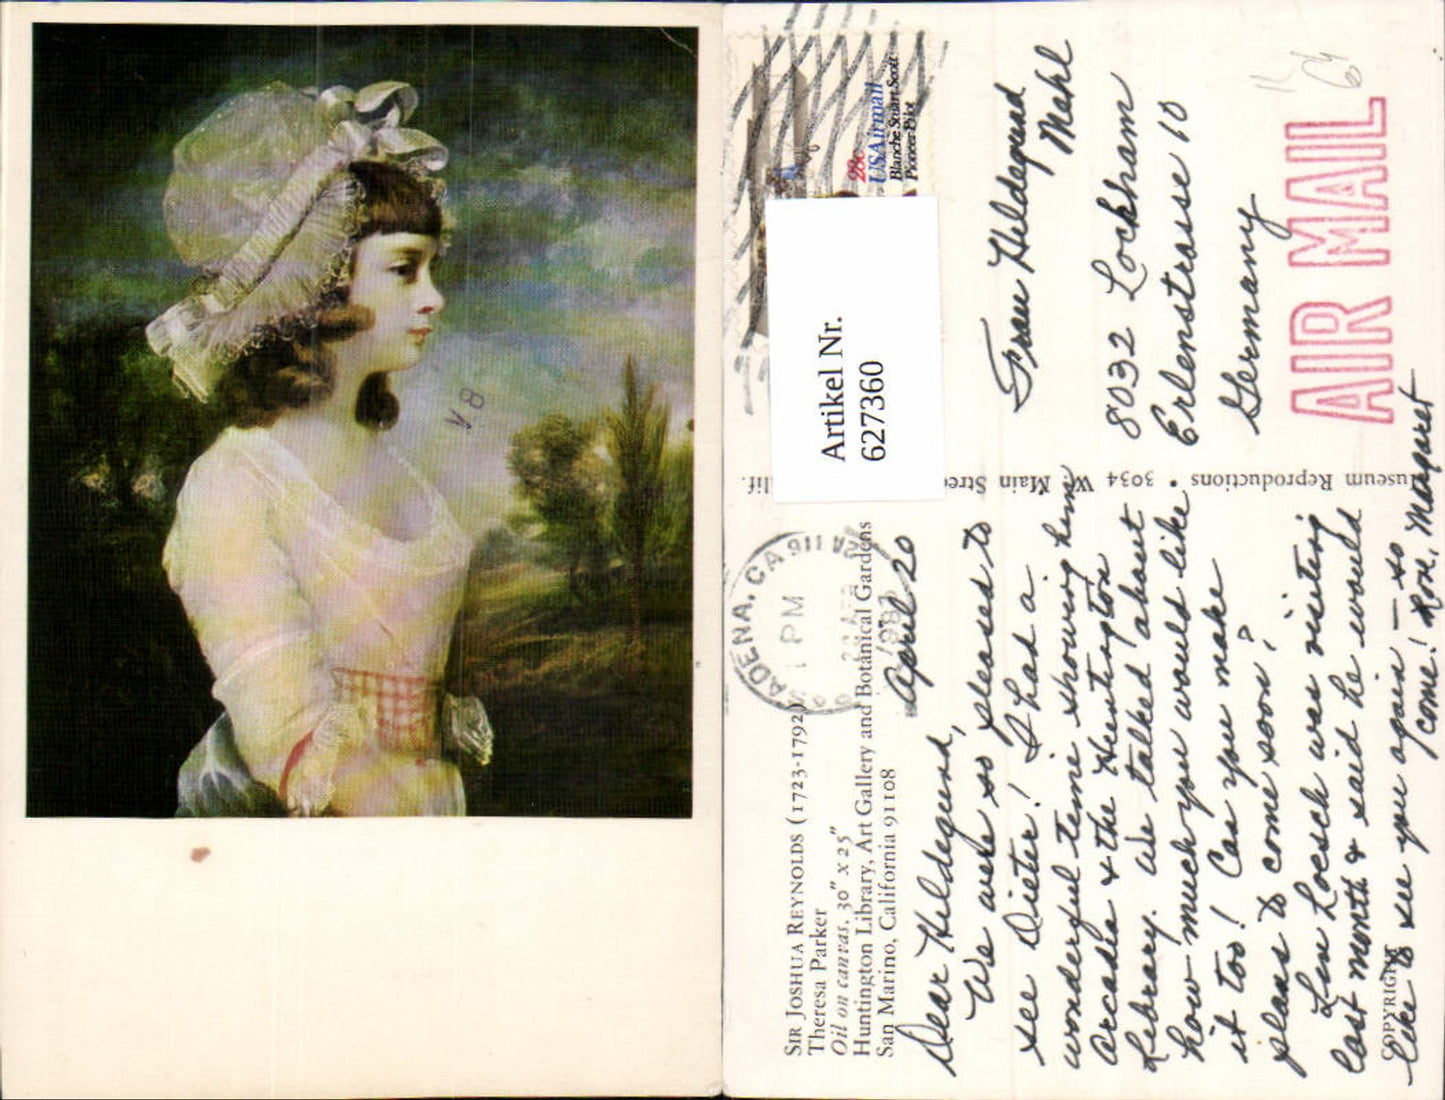 V8
SIR JOSHUA REYNOLDS (1723-1792)
Theresa Parker
Oil on canvas. 30" x 25"
Huntington Library, Art Gallery and Botanical Gardens
San Marino, California 91108
April 20
Dear Hildegund,
We were so pleased to
see Dieter! I had a
wonderful time showing him
Arcadia & the Huntington
Library. We talked about
how much you would like
it too! Can you make
plans to come soon?
Lou Loesch was visiting
last month & said he would
like to see you again — so
come! Love, Margaret
COPYRIGHT
Museum Reproductions • 3034 W. Main Stree
lif.
PASADENA, CA 911
1 PM
22 APR
198
28c
USAirmail
Blanche Stuart Scott
Pioneer Pilot
Artikel Nr.
627360
Frau Hildegund
Mahl
8032 Lochham
Erlenstrasse 10
Germany
AIR MAIL
64